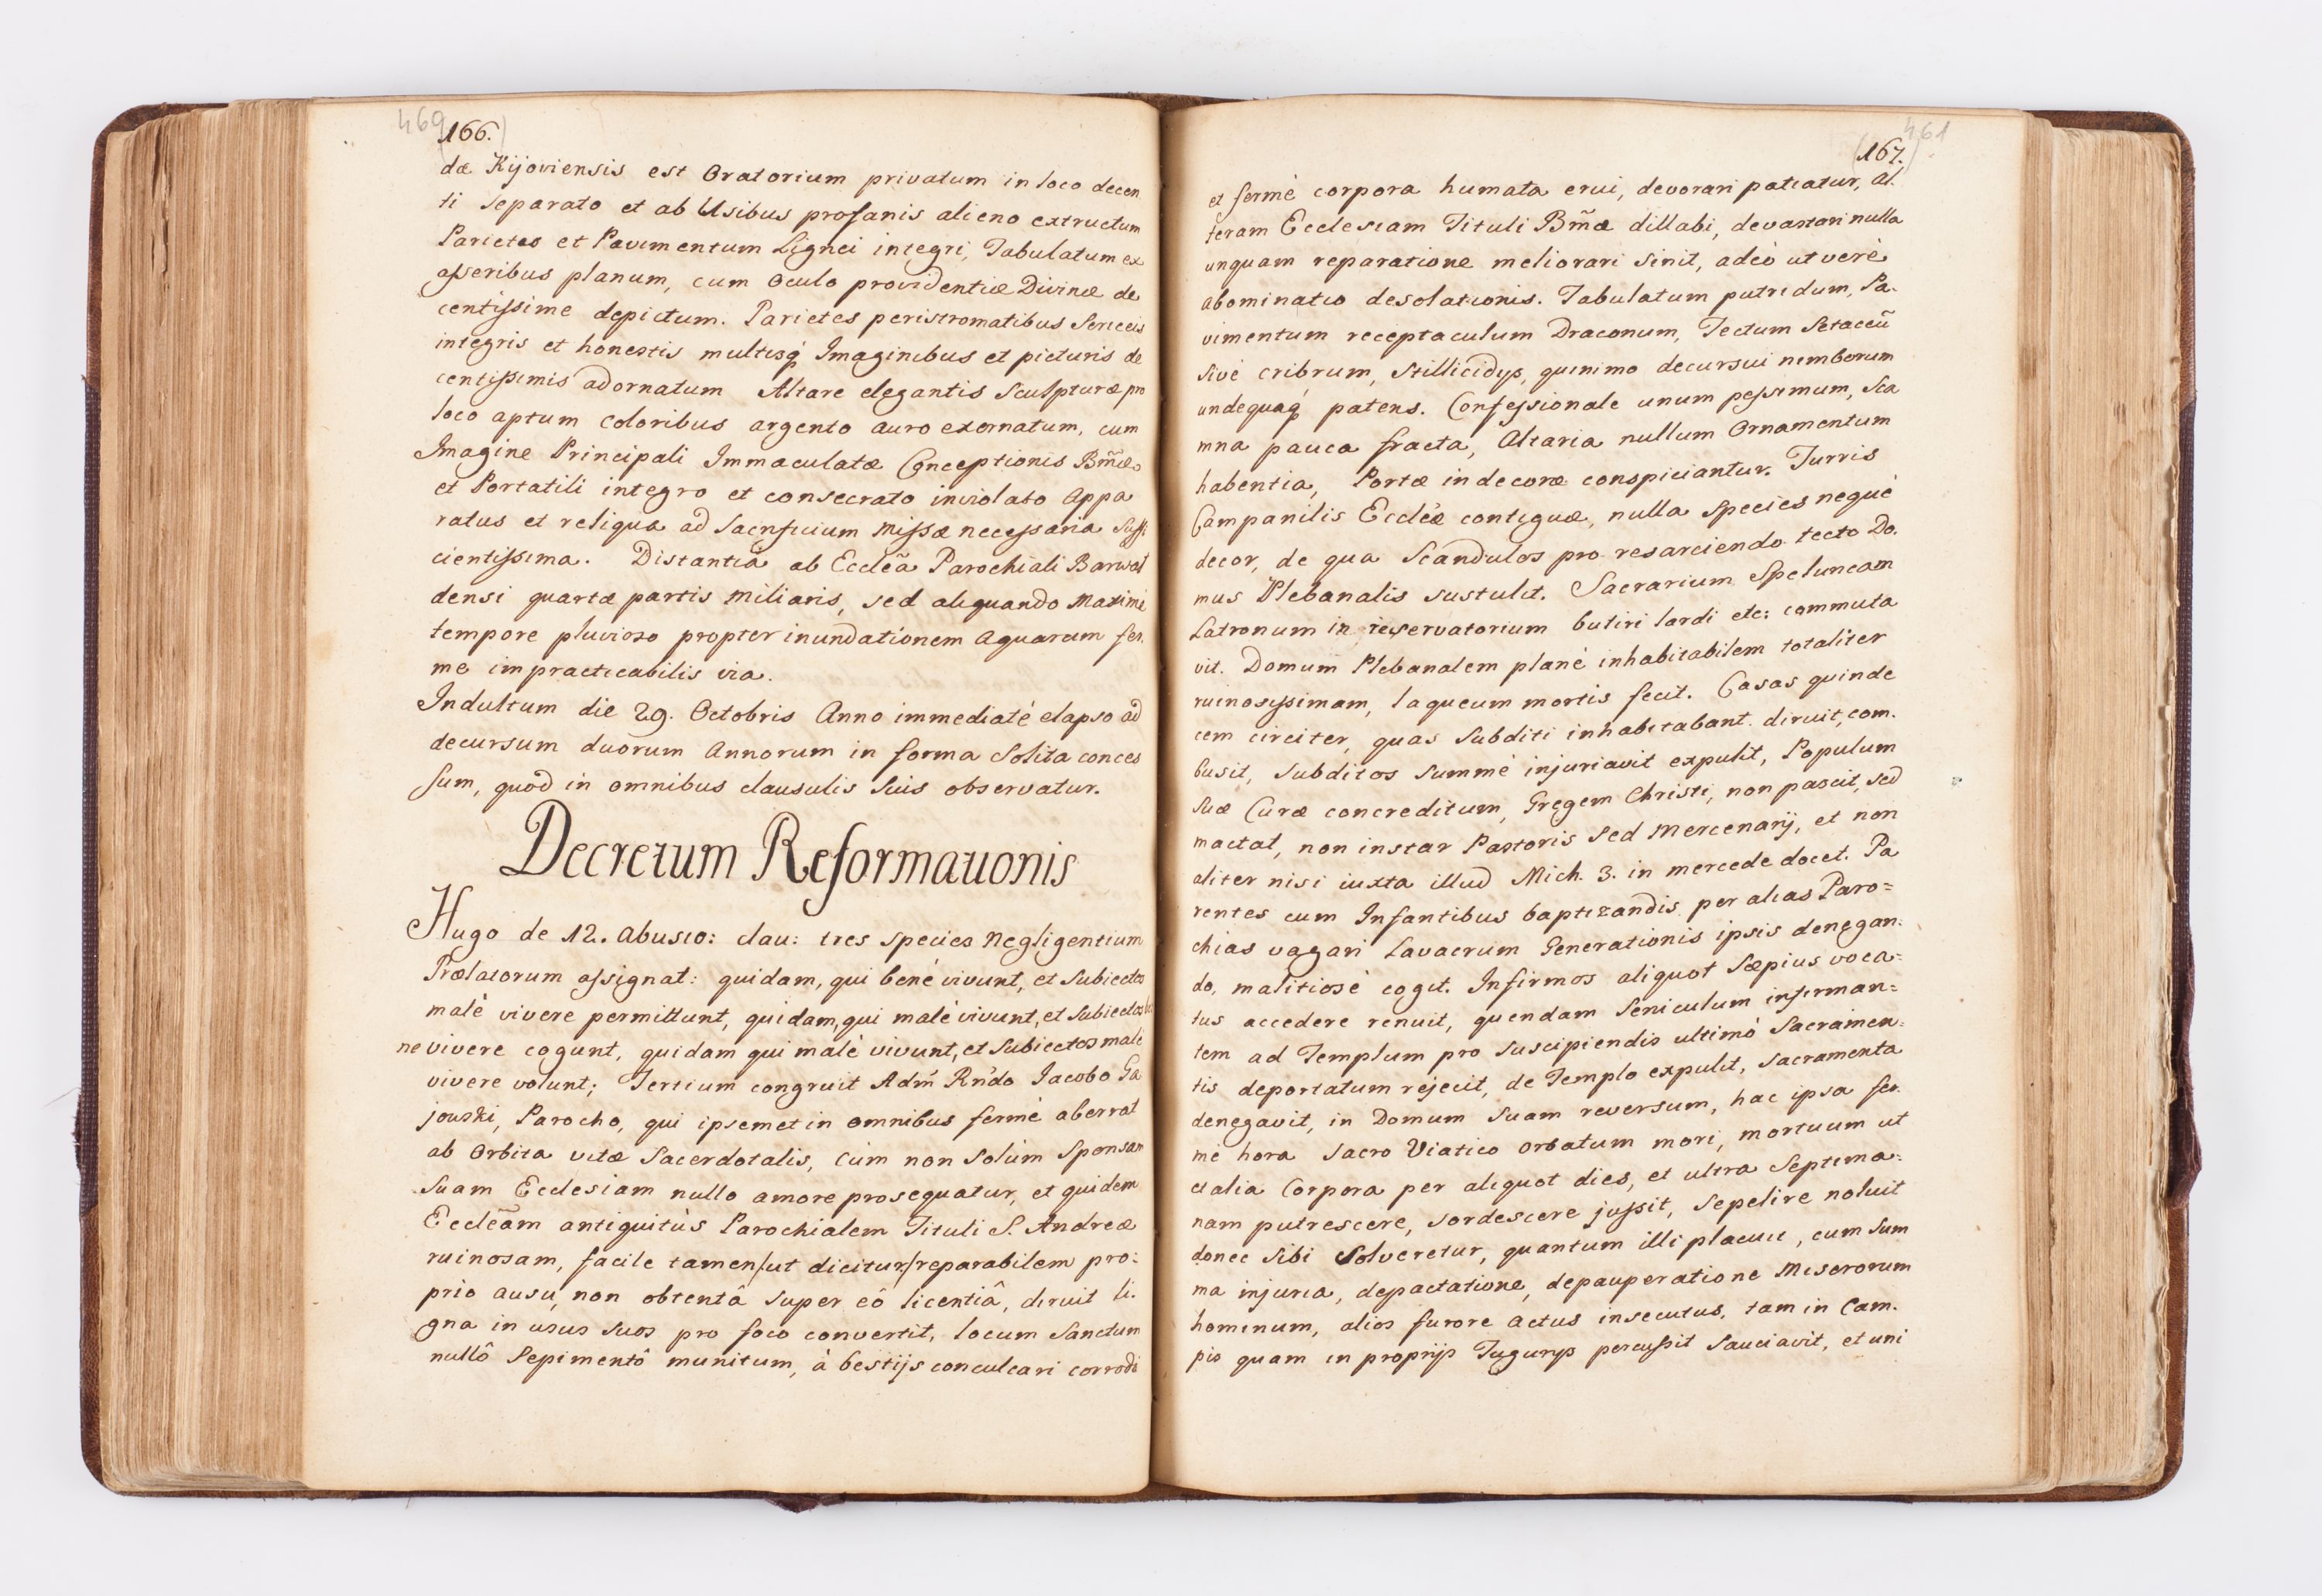 469
166.
dæ Kijoviensis est Oratorium privatum in loco decen
ti separato et ab Usibus profanis alieno extructum
Parietes et Pavimentum Lignei integri, Tabulatum ex
asseribus planum, cum Oculo providentiæ Divinæ de
centissime depictum. Parietes peristromatibus Sericeis
integris et honestis multisq́ Imaginibus et picturis de
centissimis adornatum Altare elegantis Sculpturæ pro
loco aptum coloribus argento auro exornatum, cum
Imagine Principali Immaculatæ Conceptionis Bm̃æ
et Portatili integro et consecrato inviolato Appa
ratus et reliqua ad Sacrificium Missæ necessaria suffi
cientissima. Distantia ab Ecclẽa Parochiali Barwal
densi quartæ partis Miliaris, sed aliquando Maxime
tempore pluvioso propter inundationem Aquarum fer.
me impracticabilis via.
Indultum die 29. Octobris Anno immediaté elapso ad
decursum duorum Annorum in forma Solita conces
sum, quod in omnibus clausulis Suis observatur.
Decretum Reformationis
Hugo de 12. Abusio: clau: tres species Negligentium
Prælatorum assignat: quidam, qui bené vivunt, et Subiectos
malé vivere permittunt, quidam, qui malé vivunt, et Subiectos be
ne vivere cogunt, quidam qui malé vivunt, et Subiectos malé
vivere volunt; Tertium congruit Adm̃ Rñdo Jacobo Ga
jowski, Parocho, qui ipsemet in omnibus fermé aberrat
ab Orbita vitæ Sacerdotalis, cùm non Solùm Sponsam
Suam Ecclesiam nullo amore prosequatur, et quidem
Ecclẽam antiquitùs Parochialem Tituli S. Andreæ
ruinosam, facile tamen /ut dicitur/ reparabilem pro:
prio ausu, non obtentâ super eô licentiâ, diruit li.
gna in usus suos pro foco convertit, locum Sanctum
nullô Sepimentô munitum, à bestijs conculcari corrodi
461
167.
et fermè corpora humata erui, devorari patiatur, Al.
teram Ecclesiam Tituli Bm̃æ dillabi, devastari nulla
unquam reparatione meliorari sinit, adeò ut verè
abominatio desolationis. Tabulatum putridum, Pa.
vimentum receptaculum Draconum, Tectum Setaceũ
sivè cribrum, Stillicidys, quinimo decursui nimborum
undequaq́ patens. Confessionale unum pessimum, Sca
mna pauca fracta, Altaria nullum Ornamentum
habentia, Portæ indecoræ conspiciantur. Turris
Campanilis Eccléæ contiguæ, nulla species neque
decor, de qua Scandulos pro resarciendo tecto Do.
mus Plebanalis sustulit. Sacrarium Speluncam
Latronum in reservatorium butiri lardi etc: commuta
vit. Domum Plebanalem planè inhabitabilem totaliter
ruinosissimam, laqueum mortis fecit. Casas quinde
cem circiter, quas Subditi inhabitabant diruit, com.
busit, Subditos Summé injuriavit expulit, Populum
suæ Curæ concreditum, Gregem Christi, non pascit, sed
mactat, non instar Pastoris sed Mercenarij, et non
aliter nisi iuxta illud Mich. 3. in mercede docet. Pa
rentes cum Infantibus baptizandis per alias Paro=
chias vagari Lavacrum Generationis ipsis denegan.
do, malitiosè cogit. Infirmos aliquot Sæpius voca=
tus accedere renuit, quendam Seniculum infirman=
tem ad Templum pro suscipiendis ultimò Sacramen.
tis deportatum rejecit, de Templo expulit, sacramenta
denegavit, in Domum Suam reversum, hac ipsa fer.
mè hora Sacro Viatico orbatum mori, mortuum ut
et alia Corpora per aliquot dies, et ultra Septima=
nam putrescere, sordescere jussit, sepelire noluit
donec sibi Solveretur, quantum illi placuit, cum sum
ma injuria, depactatione, depauperatione Miserorum
hominum, alios furore Actus insecutus, tam in Cam.
pis quam in proprijs Tugurijs percussit Sauciavit, et uni